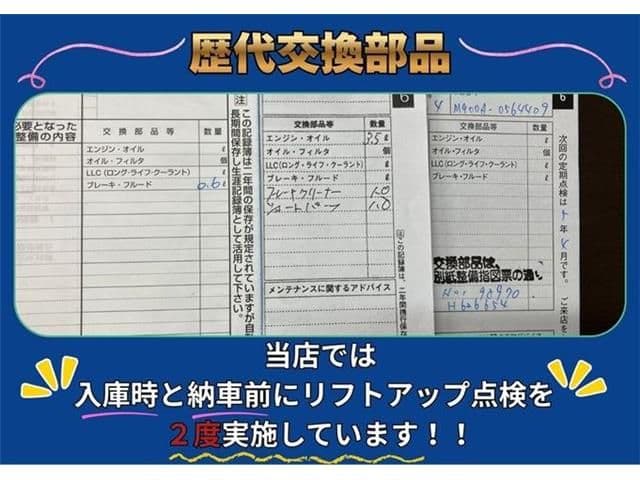 歴代交換部品
必要となった
整備の内容
交換部品等 数量
エンジン・オイル ℓ
オイル・フィルタ 個
LLC(ロング・ライフ・クーラント) ℓ
ブレーキ・フルード 0.6ℓ
注
この記録簿は二年間の保存が規定されていますが自動
長期間保存し生涯記録簿として活用して下さい。
6
交換部品等 数量
エンジン・オイル 3.5ℓ
オイル・フィルタ 個
LLC(ロング・ライフ・クーラント) ℓ
ブレーキ・フルード ℓ
ブレーキクリーナー 1.0
ショートパーツ 1.0
メンテナンスに関するアドバイス
この記録簿は、二年間携行保存
6
M900A-0564409
交換部品等 数量
エンジン・オイル ℓ
オイル・フィルタ 個
LLC(ロング・ライフ・クーラント) ℓ
ブレーキ・フルード ℓ
交換部品は、
別紙整備指図票の通り
次回の定期点検は
年
月です。
ご来店を
当店では
入庫時と納車前にリフトアップ点検を
２度実施しています！！